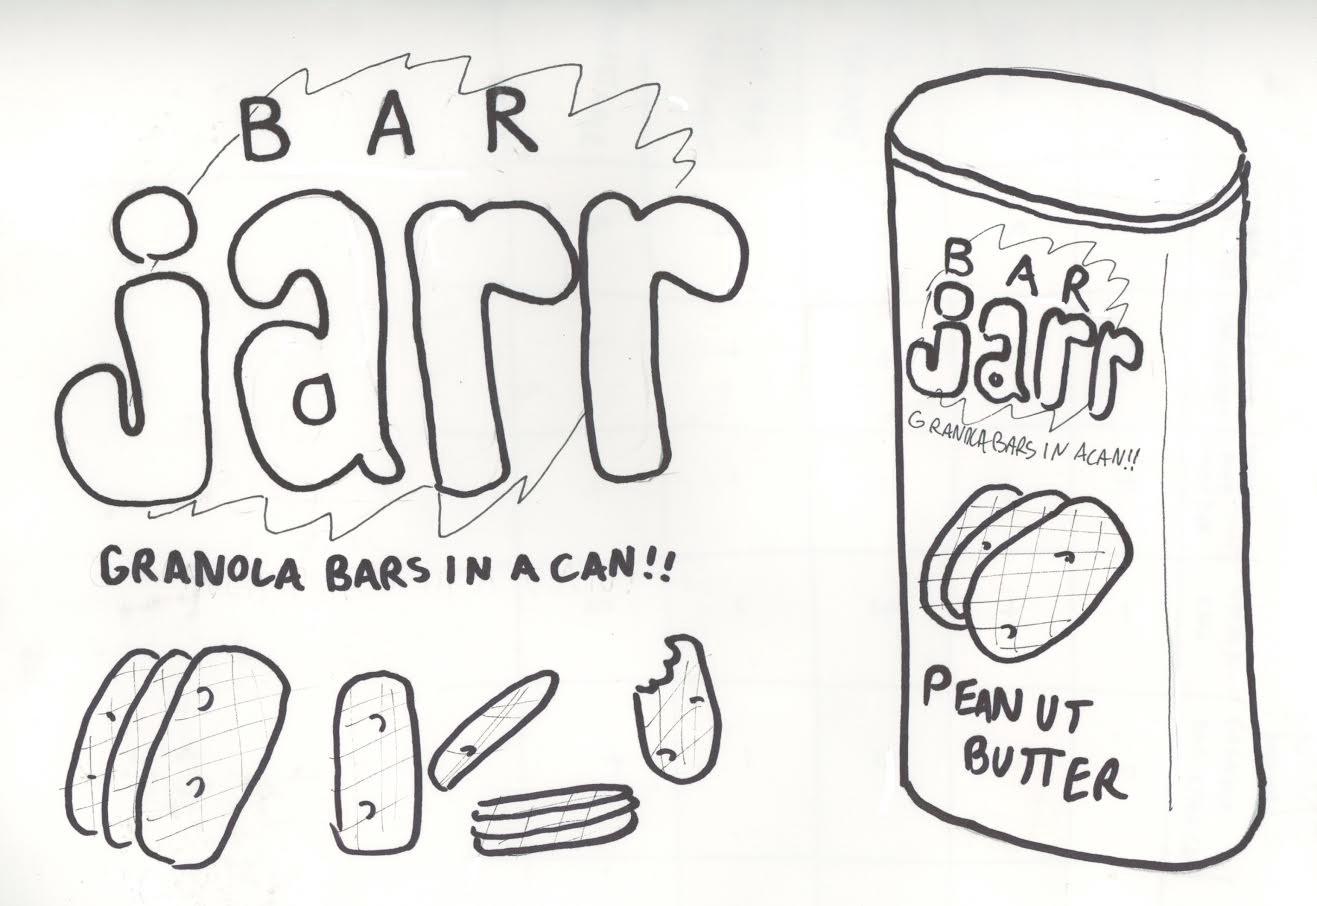 BAR
jarr
GRANOLA BARS IN A CAN!!
BAR
jarr
GRANOLA BARS IN A CAN!!
PEANUT
BUTTER